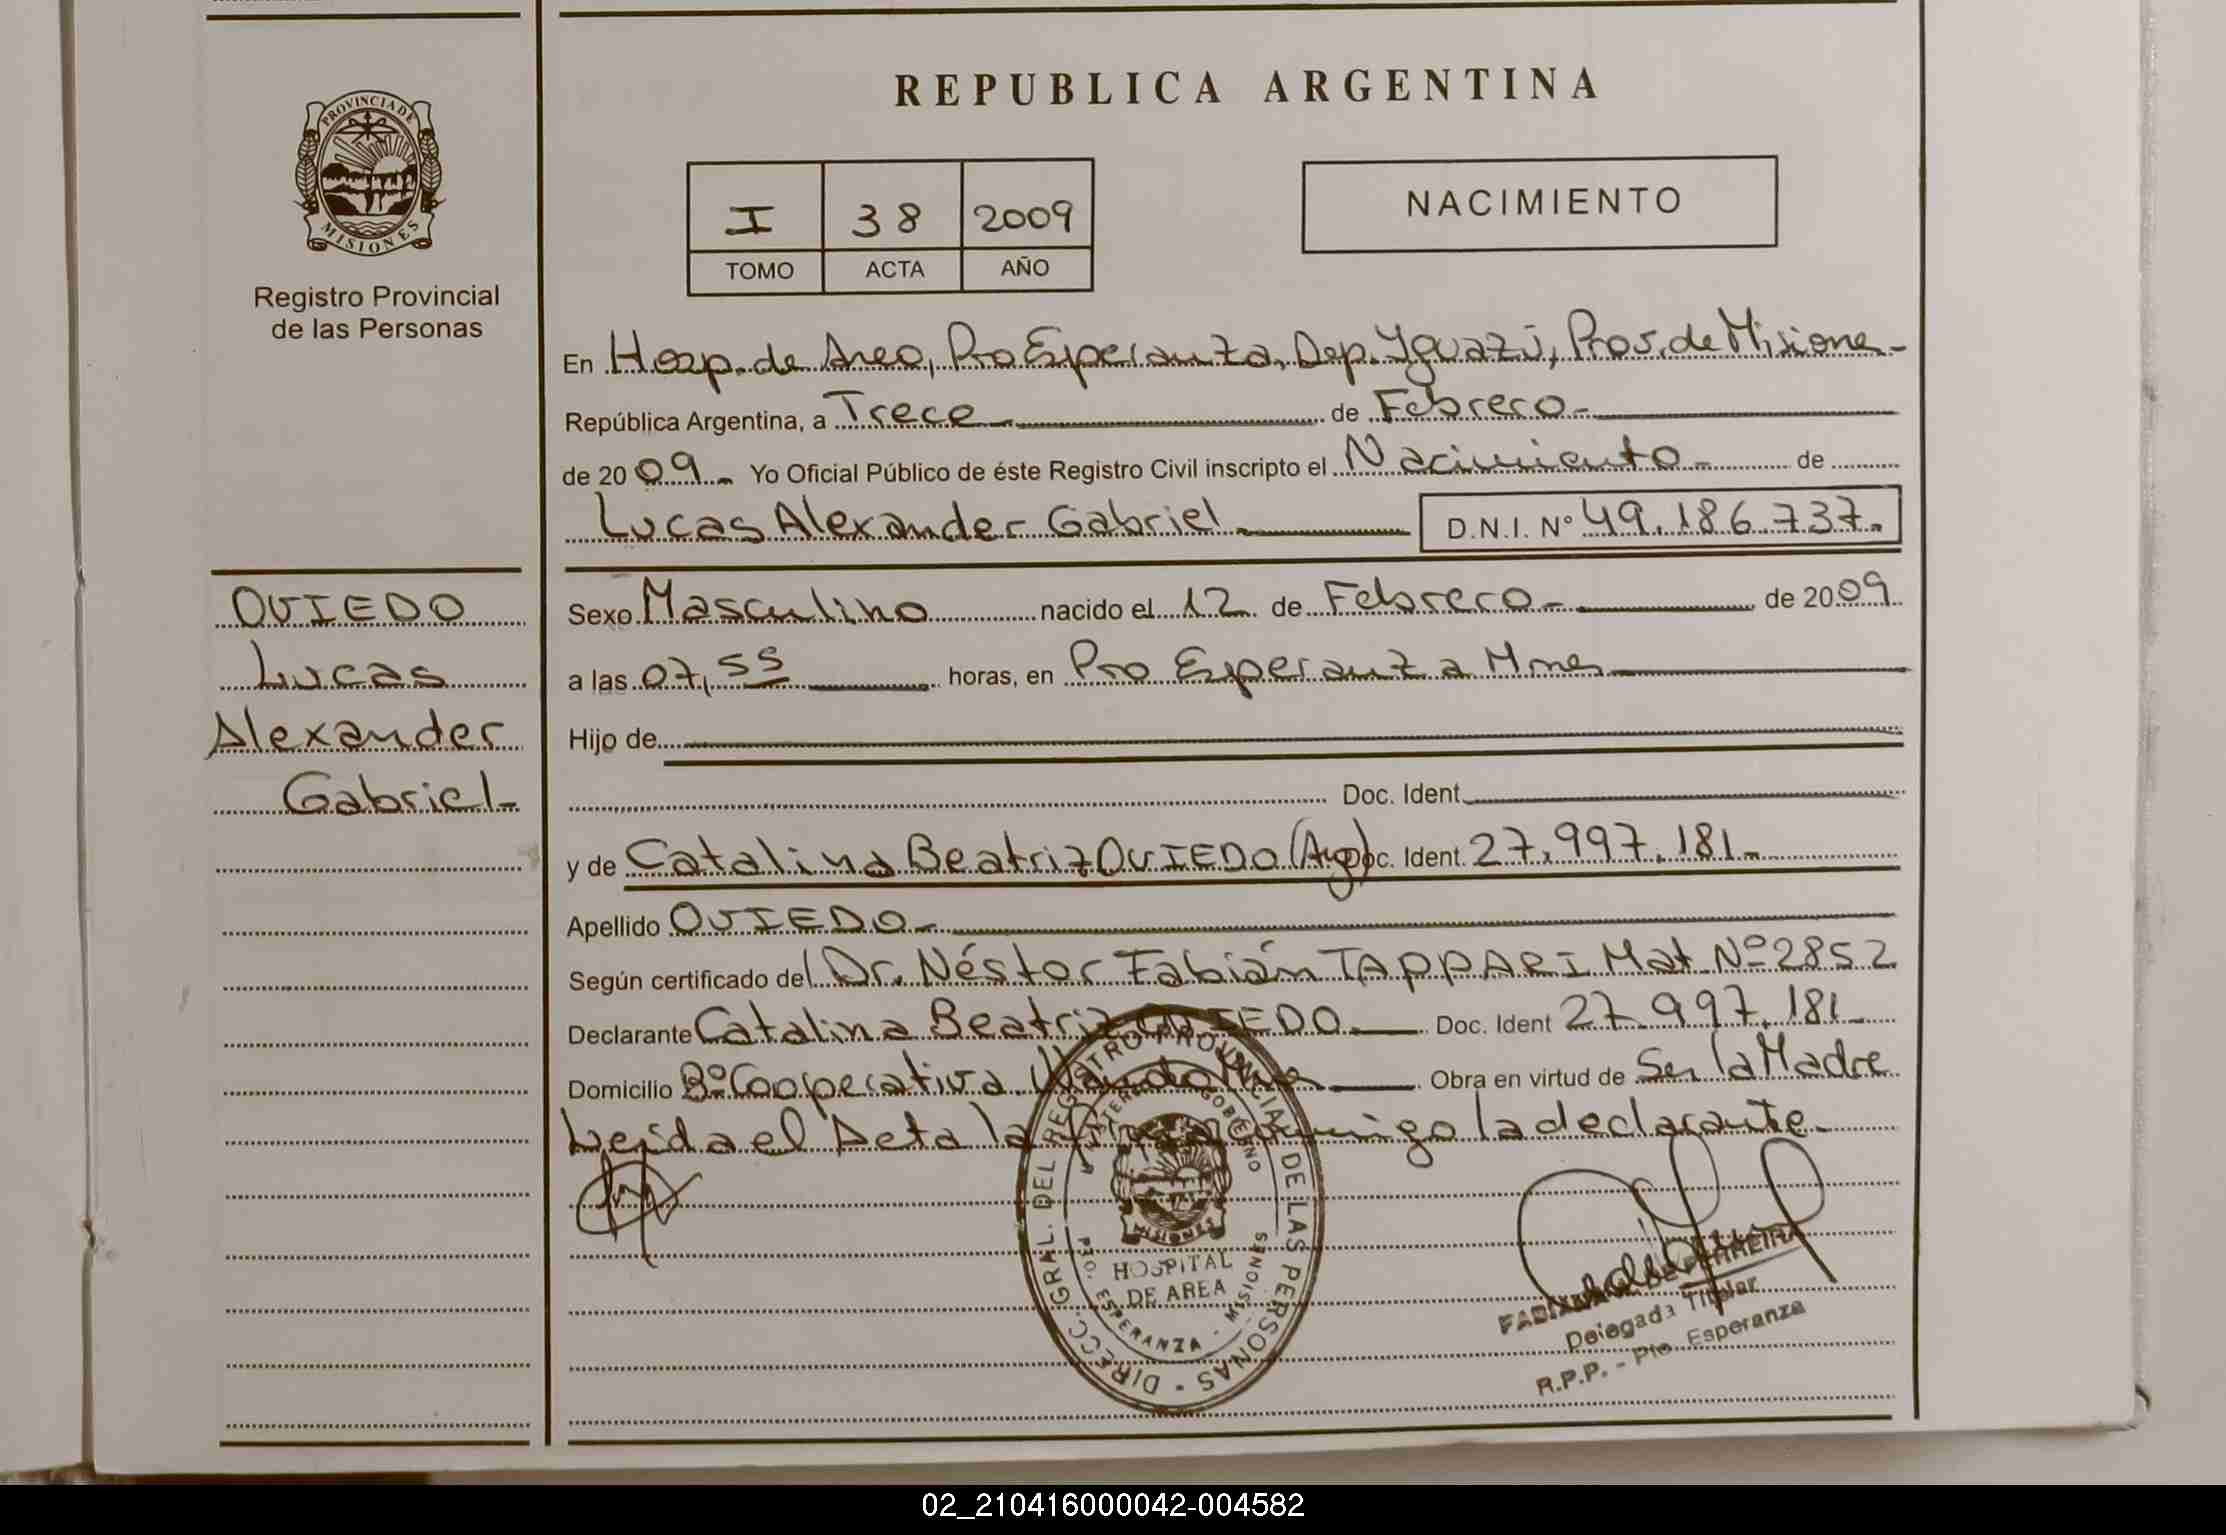 REPUBLICA ARGENTINA
PROVINCIA DE
MISIONES
Registro Provincial
de las Personas
I 38 2009
TOMO ACTA AÑO
NACIMIENTO
En Hosp. de Area, Pto Esperanza, Dep. Yguazú, Prov. de Misione-
República Argentina, a Trece de Febrero-
de 2009- Yo Oficial Público de éste Registro Civil inscripto el Nacimiento- de
Lucas Alexander Gabriel D.N.I. Nº 49.186.737.
OVIEDO
Lucas
Alexander
Gabriel-
Sexo Masculino nacido el 12 de Febrero- de 2009
a las 07,55 horas, en Pto Esperanza Mnes
Hijo de
Doc. Ident.
y de Catalina Beatriz OVIEDO (Arg) Doc. Ident. 27.997.181-
Apellido OVIEDO-
Según certificado del Dr. Néstor Fabián TAPPARI Mat. Nº 2852
Declarante Catalina Beatriz OVIEDO Doc. Ident 27.997.181-
Domicilio Bº Cooperativa. Wanda Mnes Obra en virtud de Ser la Madre
Leida el Acta la firma conmigo la declarante-
DIRECC. GRAL. DEL REGISTRO PROVINCIAL DE LAS PERSONAS
MINISTERIO GOBIERNO
MISIONES
HOSPITAL
DE AREA
PTO. ESPERANZA - MISIONES
FERREIRA
Delegada Titular
R.P.P. - Pto. Esperanza
02_210416000042-004582